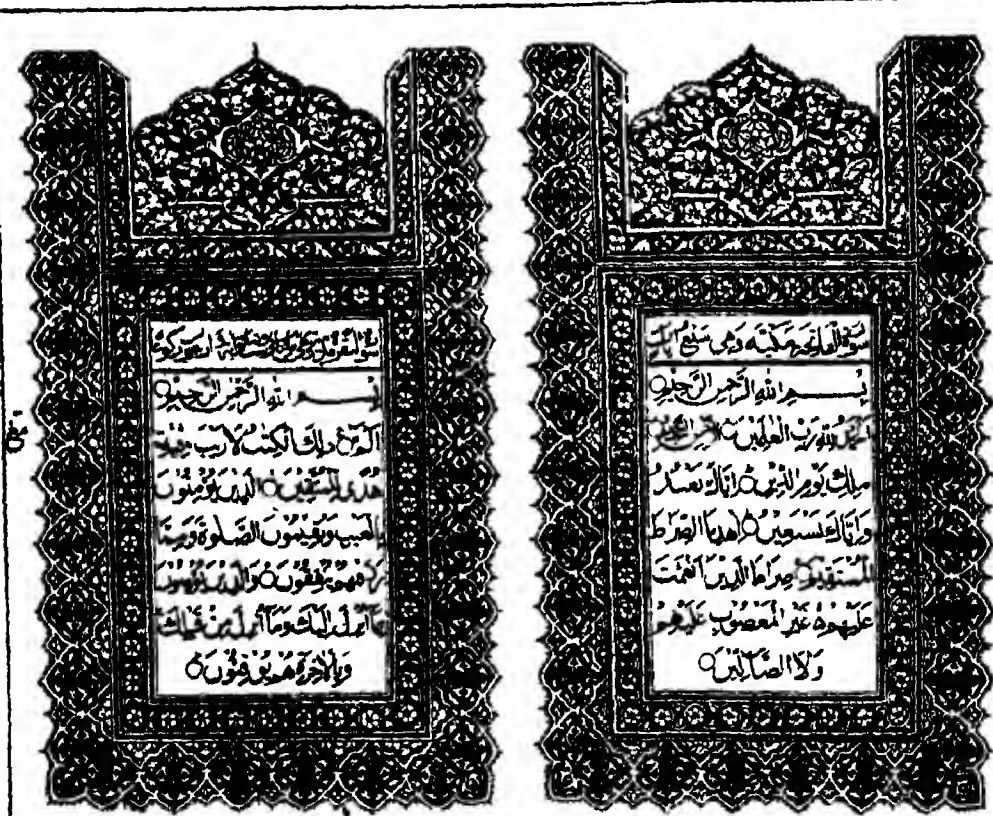 سورة الفاتحة مكية وهي سبع ايات
بسم الله الرحمن الرحيم
الحمد لله رب العلمين الرحمن الرحيم
ملك يوم الدين اياك نعبد
واياك نستعين اهدنا الصراط
المستقيم صراط الذين انعمت
عليهم غير المغضوب عليهم
ولا الضالين
سورة البقرة
بسم الله الرحمن الرحيم
الم ذلك الكتب لا ريب فيه
هدى للمتقين الذين يؤمنون
بالغيب ويقيمون الصلوة ومما
رزقنهم ينفقون والذين يؤمنون
بما انزل اليك وما انزل من قبلك
وبالاخرة هم يوقنون